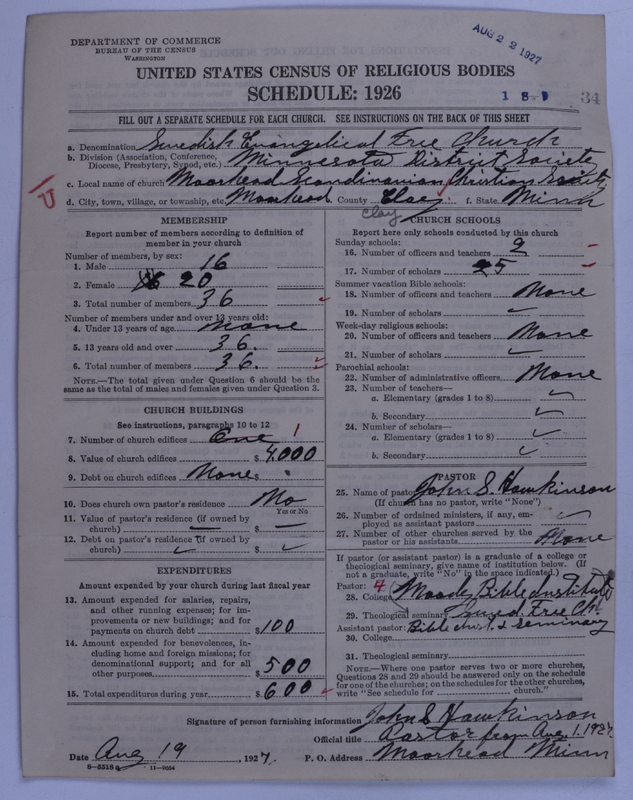 DEPARTMENT OF COMMERCE
BUREAU OF THE CENSUS
WASHINGTON
AUG 22 1927
UNITED STATES CENSUS OF RELIGIOUS BODIES
SCHEDULE: 1926
18-
34
FILL OUT A SEPARATE SCHEDULE FOR EACH CHURCH. SEE INSTRUCTIONS ON THE BACK OF THIS SHEET
a. Denomination Swedish Evangelical Free Church
b. Division (Association, Conference, Diocese, Presbytery, Synod, etc.) Minnesota District Society
c. Local name of church Moorhead Scandinavian Christian Society
d. City, town, village, or township, etc. Moorhead County Clay f. State Minn
Clay
U
MEMBERSHIP
Report number of members according to definition of
member in your church
Number of members, by sex:
1. Male 16
2. Female 16 20
3. Total number of members 36
Number of members under and over 13 years old:
4. Under 13 years of age None
5. 13 years old and over 36.
6. Total number of members 36.
NOTE.—The total given under Question 6 should be the
same as the total of males and females given under Question 3.
CHURCH BUILDINGS
See instructions, paragraphs 10 to 12
7. Number of church edifices One 1
8. Value of church edifices $ 4,000
9. Debt on church edifices None $
10. Does church own pastor's residence No
Yes or No
11. Value of pastor's residence (if owned by
church) — $ —
12. Debt on pastor's residence (if owned by
church) ✓ $ ✓
EXPENDITURES
Amount expended by your church during last fiscal year
13. Amount expended for salaries, repairs,
and other running expenses; for im-
provements or new buildings; and for
payments on church debt $ 100
14. Amount expended for benevolences, in-
cluding home and foreign missions; for
denominational support; and for all
other purposes $ 500
15. Total expenditures during year $ 600
CHURCH SCHOOLS
Report here only schools conducted by this church
Sunday schools:
16. Number of officers and teachers 9
17. Number of scholars 25
Summer vacation Bible schools:
18. Number of officers and teachers None
19. Number of scholars ✓
Week-day religious schools:
20. Number of officers and teachers None
21. Number of scholars ✓
Parochial schools:
22. Number of administrative officers None
23. Number of teachers—
a. Elementary (grades 1 to 8) ✓
b. Secondary ✓
24. Number of scholars—
a. Elementary (grades 1 to 8) ✓
b. Secondary ✓
PASTOR
25. Name of pastor John S. Hawkinson
(If church has no pastor, write "None")
26. Number of ordained ministers, if any, em-
ployed as assistant pastors ✓
27. Number of other churches served by the
pastor or his assistants None
If pastor (or assistant pastor) is a graduate of a college or
theological seminary, give name of institution below. (If
not a graduate, write "No" in the space indicated.)
Pastor: 4
28. College Moody Bible Institute
29. Theological seminary Swed. Free Ch.
Assistant pastor: Bible Inst. & Seminary
30. College
31. Theological seminary
NOTE.—Where one pastor serves two or more churches,
Questions 28 and 29 should be answered only on the schedule
for one of the churches; on the schedules for the other churches,
write "See schedule for church."
Signature of person furnishing information John S Hawkinson
Official title Pastor from Aug. 1. 1927.
Date Aug 19, 1927. P. O. Address Moorhead Minn
8—5518 a 11—9034